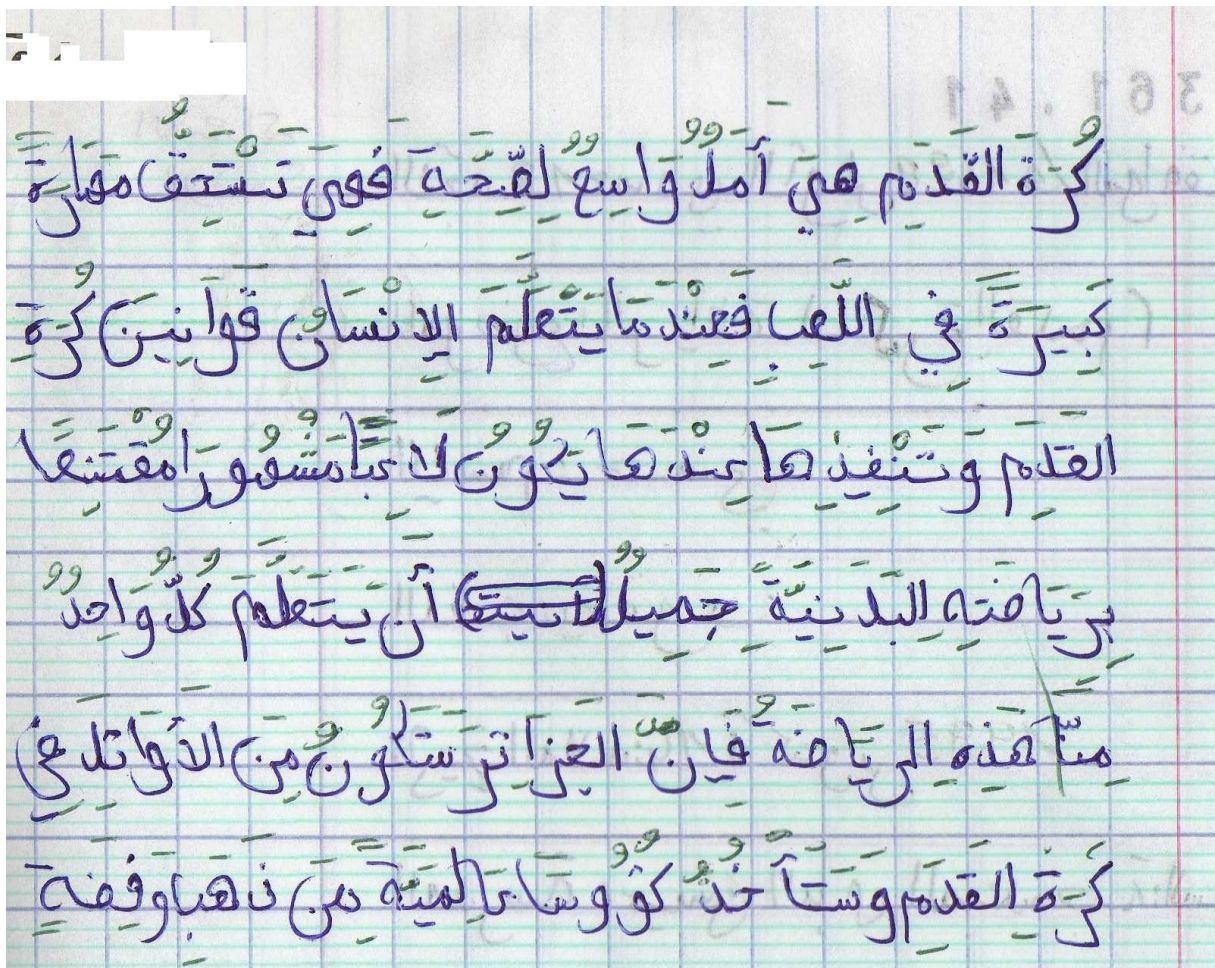 كُرَة القَدَمِ هِيَ أَمَلٌ وَاسِعٌ لِصِّحَّةِ فَهِيَ تَسْتَحِقُّ مَهَارَةً
كَبِيرَةً فِي اللَّعِبِ فَعِنْدَمَا يَتَعَلَّمَ الإِنْسَانُ قَوَانِينَ كُرَةِ
القَدَمِ وَتَنْفِيذِهَا عِنْدَهَا يَكُونُ لَاعِبًا مَشْهُورًا مُقْتَنِعًا
بِرِيَاضَتِهِ البَدَنِيَّةِ جَمِيلٌ أَن يَتَعَلَّمَ كُلُّ وَاحِدٌ
مِنَّا هَذِهِ الرِيَاضَةُ فَإِنَّ الجَزَائِرَ سَتَكُونُ مِنَ الأَوَائِلَ فِي
كُرَةِ القَدَمِ وسَتَأْخُذُ كُؤُوسًا عَالَمِيَّةً مِّنَ ذَهَبِ وَفِضَةٍ